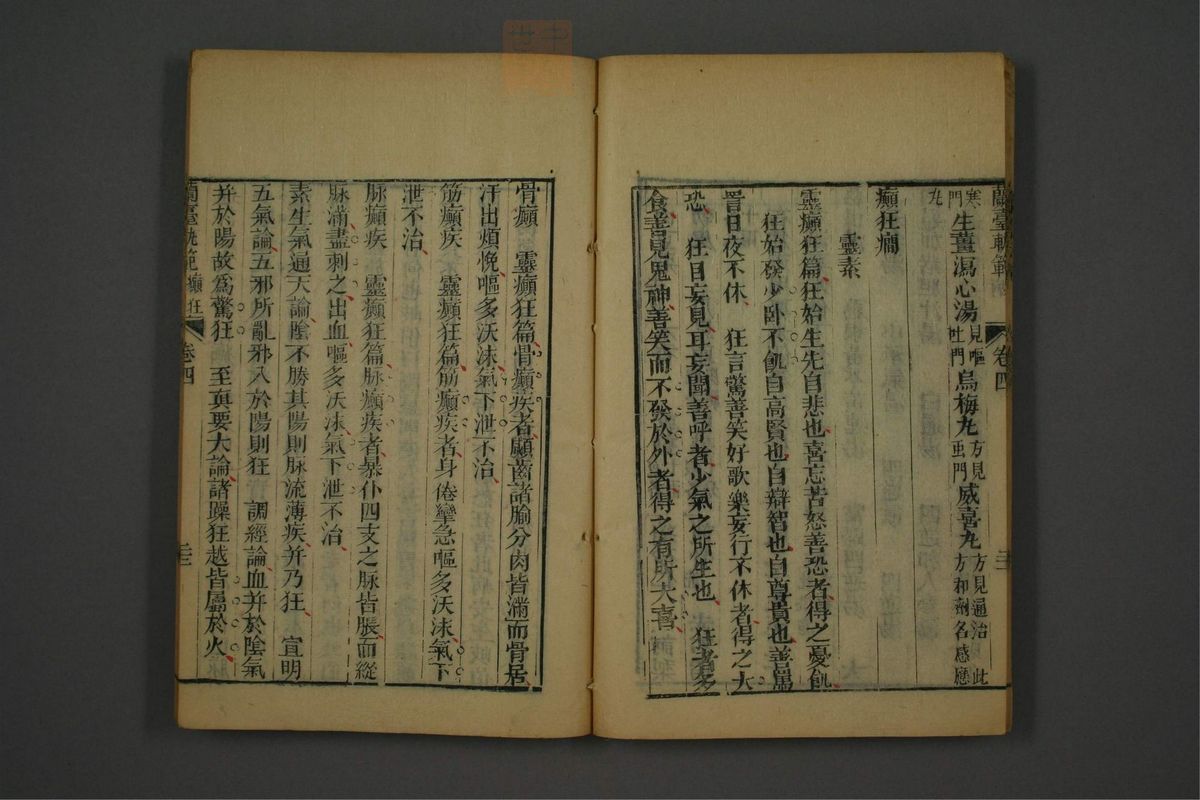 蘭臺軌範
卷四
寒門生薑瀉心湯見嘔吐門烏梅丸方見虫門威喜丸方見通治此方和劑名感應
丸
癲狂癇
靈素
靈癲狂篇狂始生先自悲也喜忘苦怒善恐者得之憂飢
狂始發少卧不飢自高賢也自辯智也自尊貴也善罵
詈日夜不休 狂言驚善笑好歌樂妄行不休者得之大
恐 狂目妄見耳妄聞善呼者少氣之所生也 狂者多
食善見鬼神善笑而不發於外者得之有所大喜
骨癲 靈癲狂篇骨癲疾者顑齒諸腧分肉皆滿而骨居
汗出煩悗嘔多沃沫氣下泄不治
筋癲疾 靈癲狂篇筋癲疾者身倦攣急嘔多沃沫氣下
泄不治
脉癲疾 靈癲狂篇脉癲疾者暴仆四支之脉皆脹而縱
脉滿盡刺之出血嘔多沃沫氣下泄不治
素生氣通天論陰不勝其陽則脉流薄疾并乃狂 宣明
五氣論五邪所亂邪入於陽則狂 調經論血并於陰氣
并於陽故爲驚狂 至眞要大論諸躁狂越皆屬於火
蘭臺軌範 癲狂
卷四